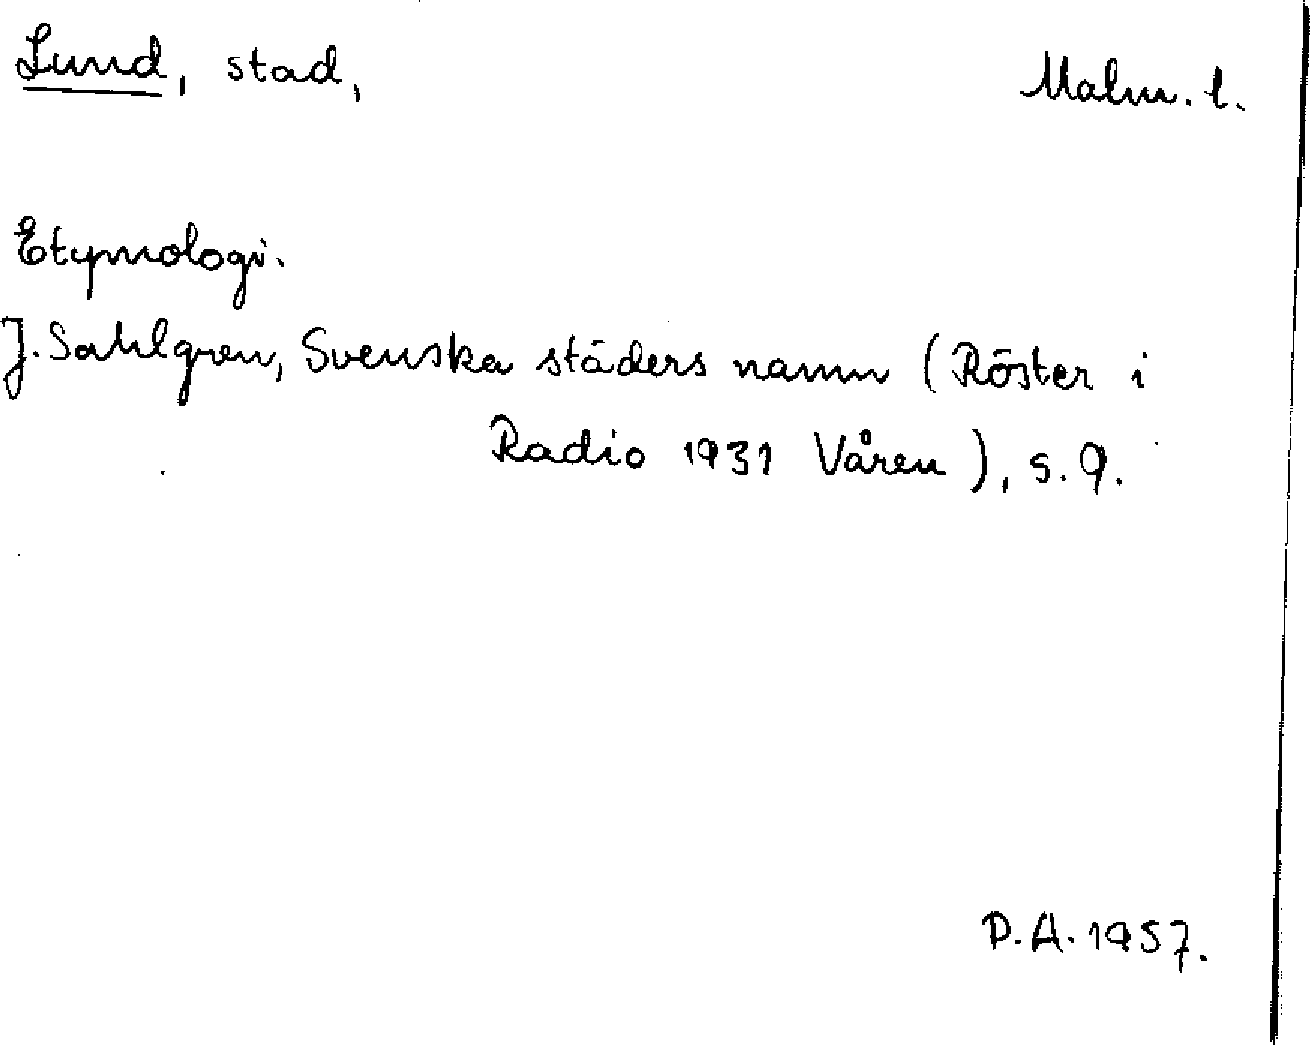 Lund, stad, Malm. l.
Etymologi.
J. Sahlgren, Svenska städers namn (Röster i
Radio 1931 Våren), s. 9.
D.A. 1957.